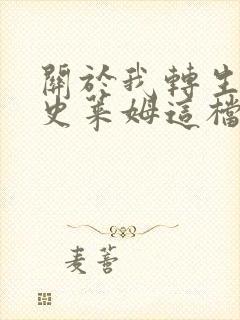 關於我轉生
史萊姆這檔
麦蒼